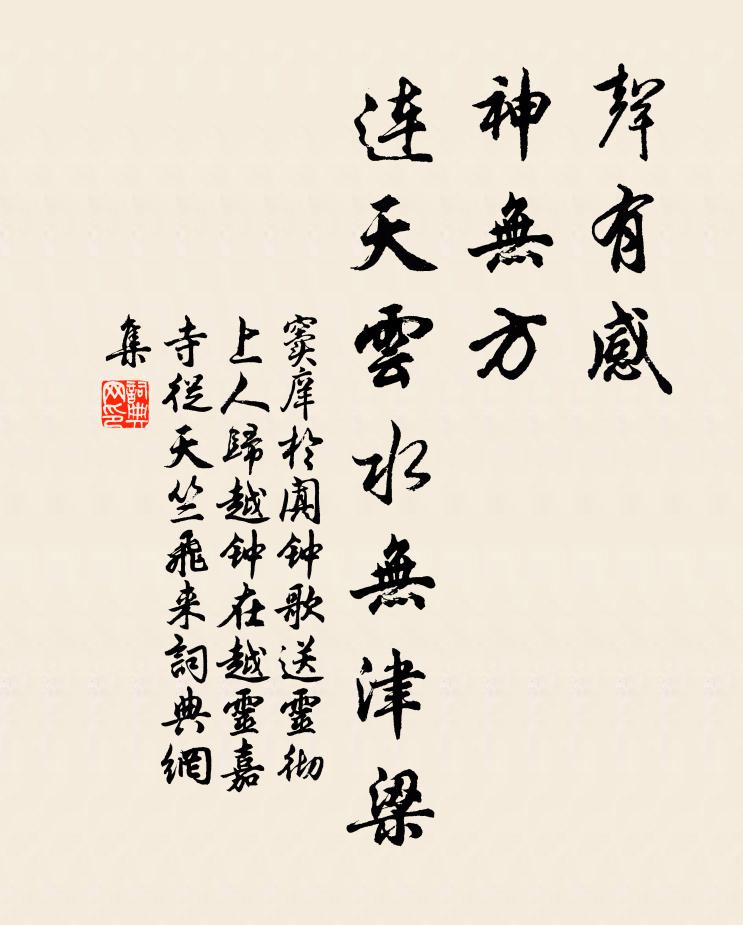 聲有感
神無方
連天雲水無津梁
竇庠於闻钟歌送靈彻
上人歸越钟在越靈嘉
寺從天竺飛来詞典網
集
詞典
网印